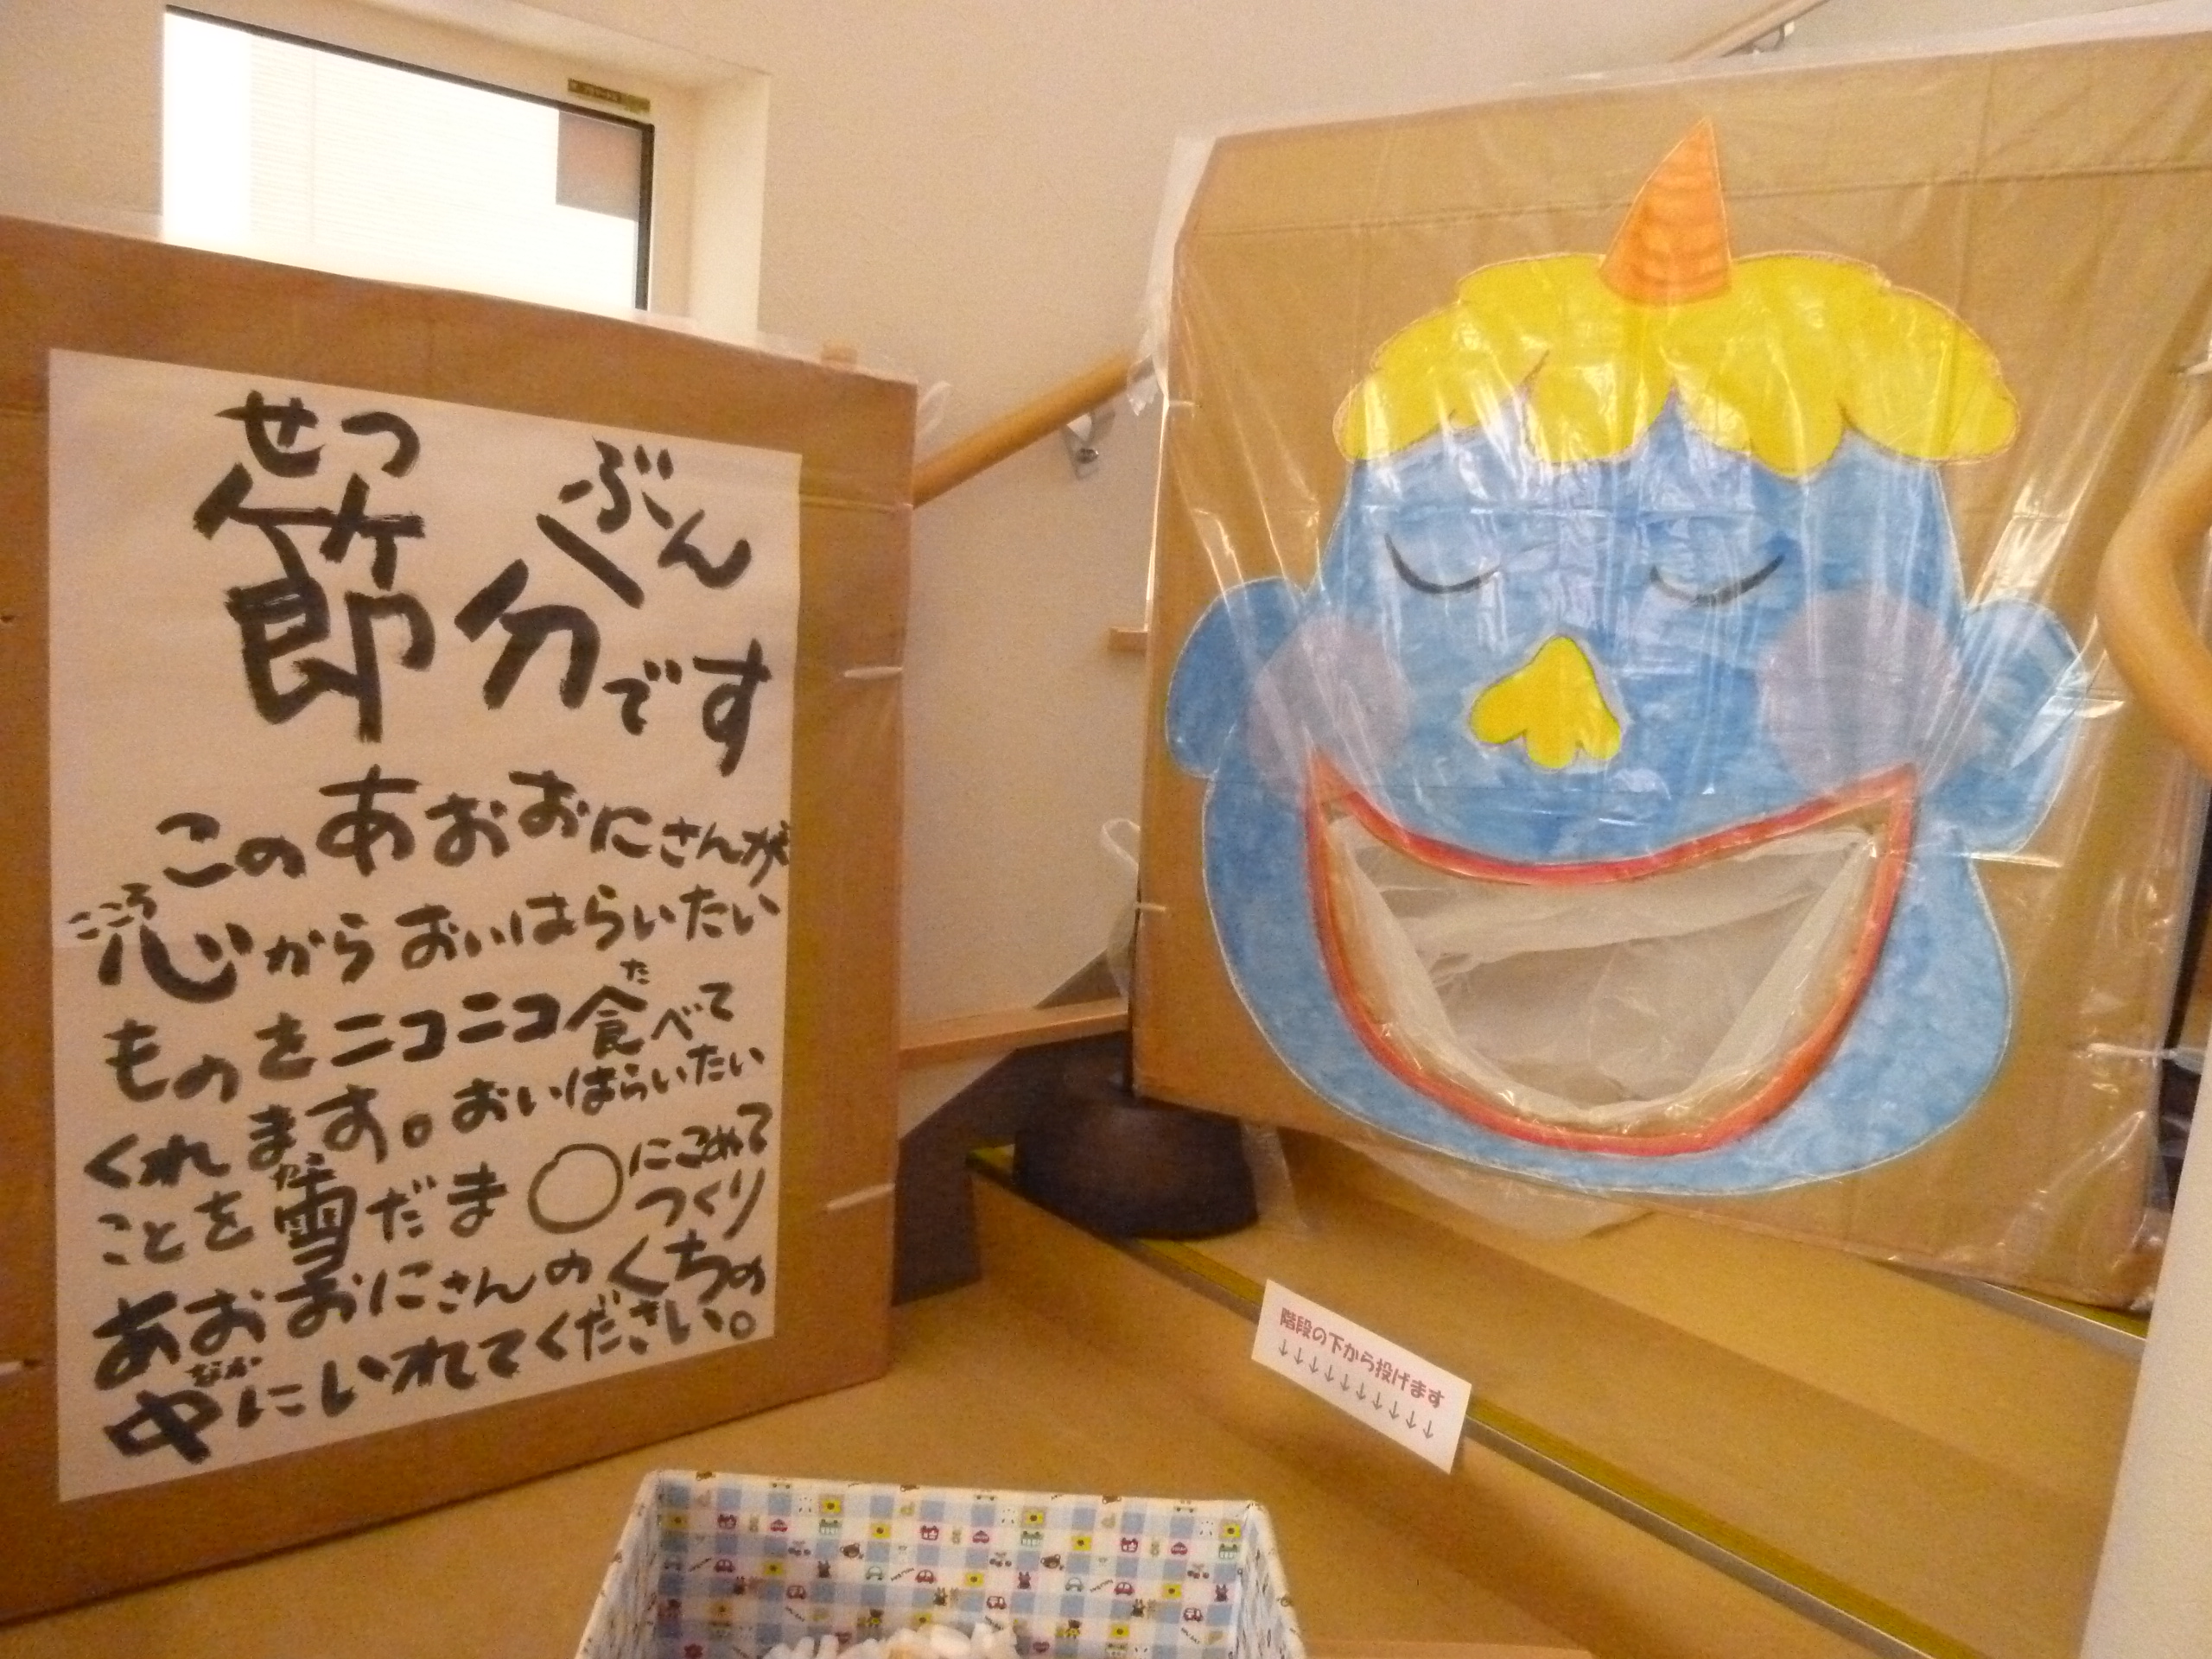 せつ ぶん
節分です
このあおおにさんが
こころ
心からおいはらいたい
た
ものをニコニコ食べて
くれます。おいはらいたい
ことを雪だま○にこめて
つくり
あおおにさんのくちの
なか
中にいれてください。
階段の下から投げます
↑↑↑↑↑↑↑↑↑↑